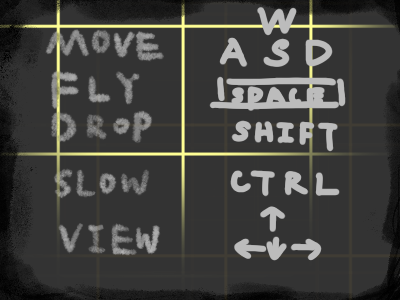 W
MOVE A S D
FLY SPACE
DROP SHIFT
SLOW CTRL
VIEW ↑
← ↓ →